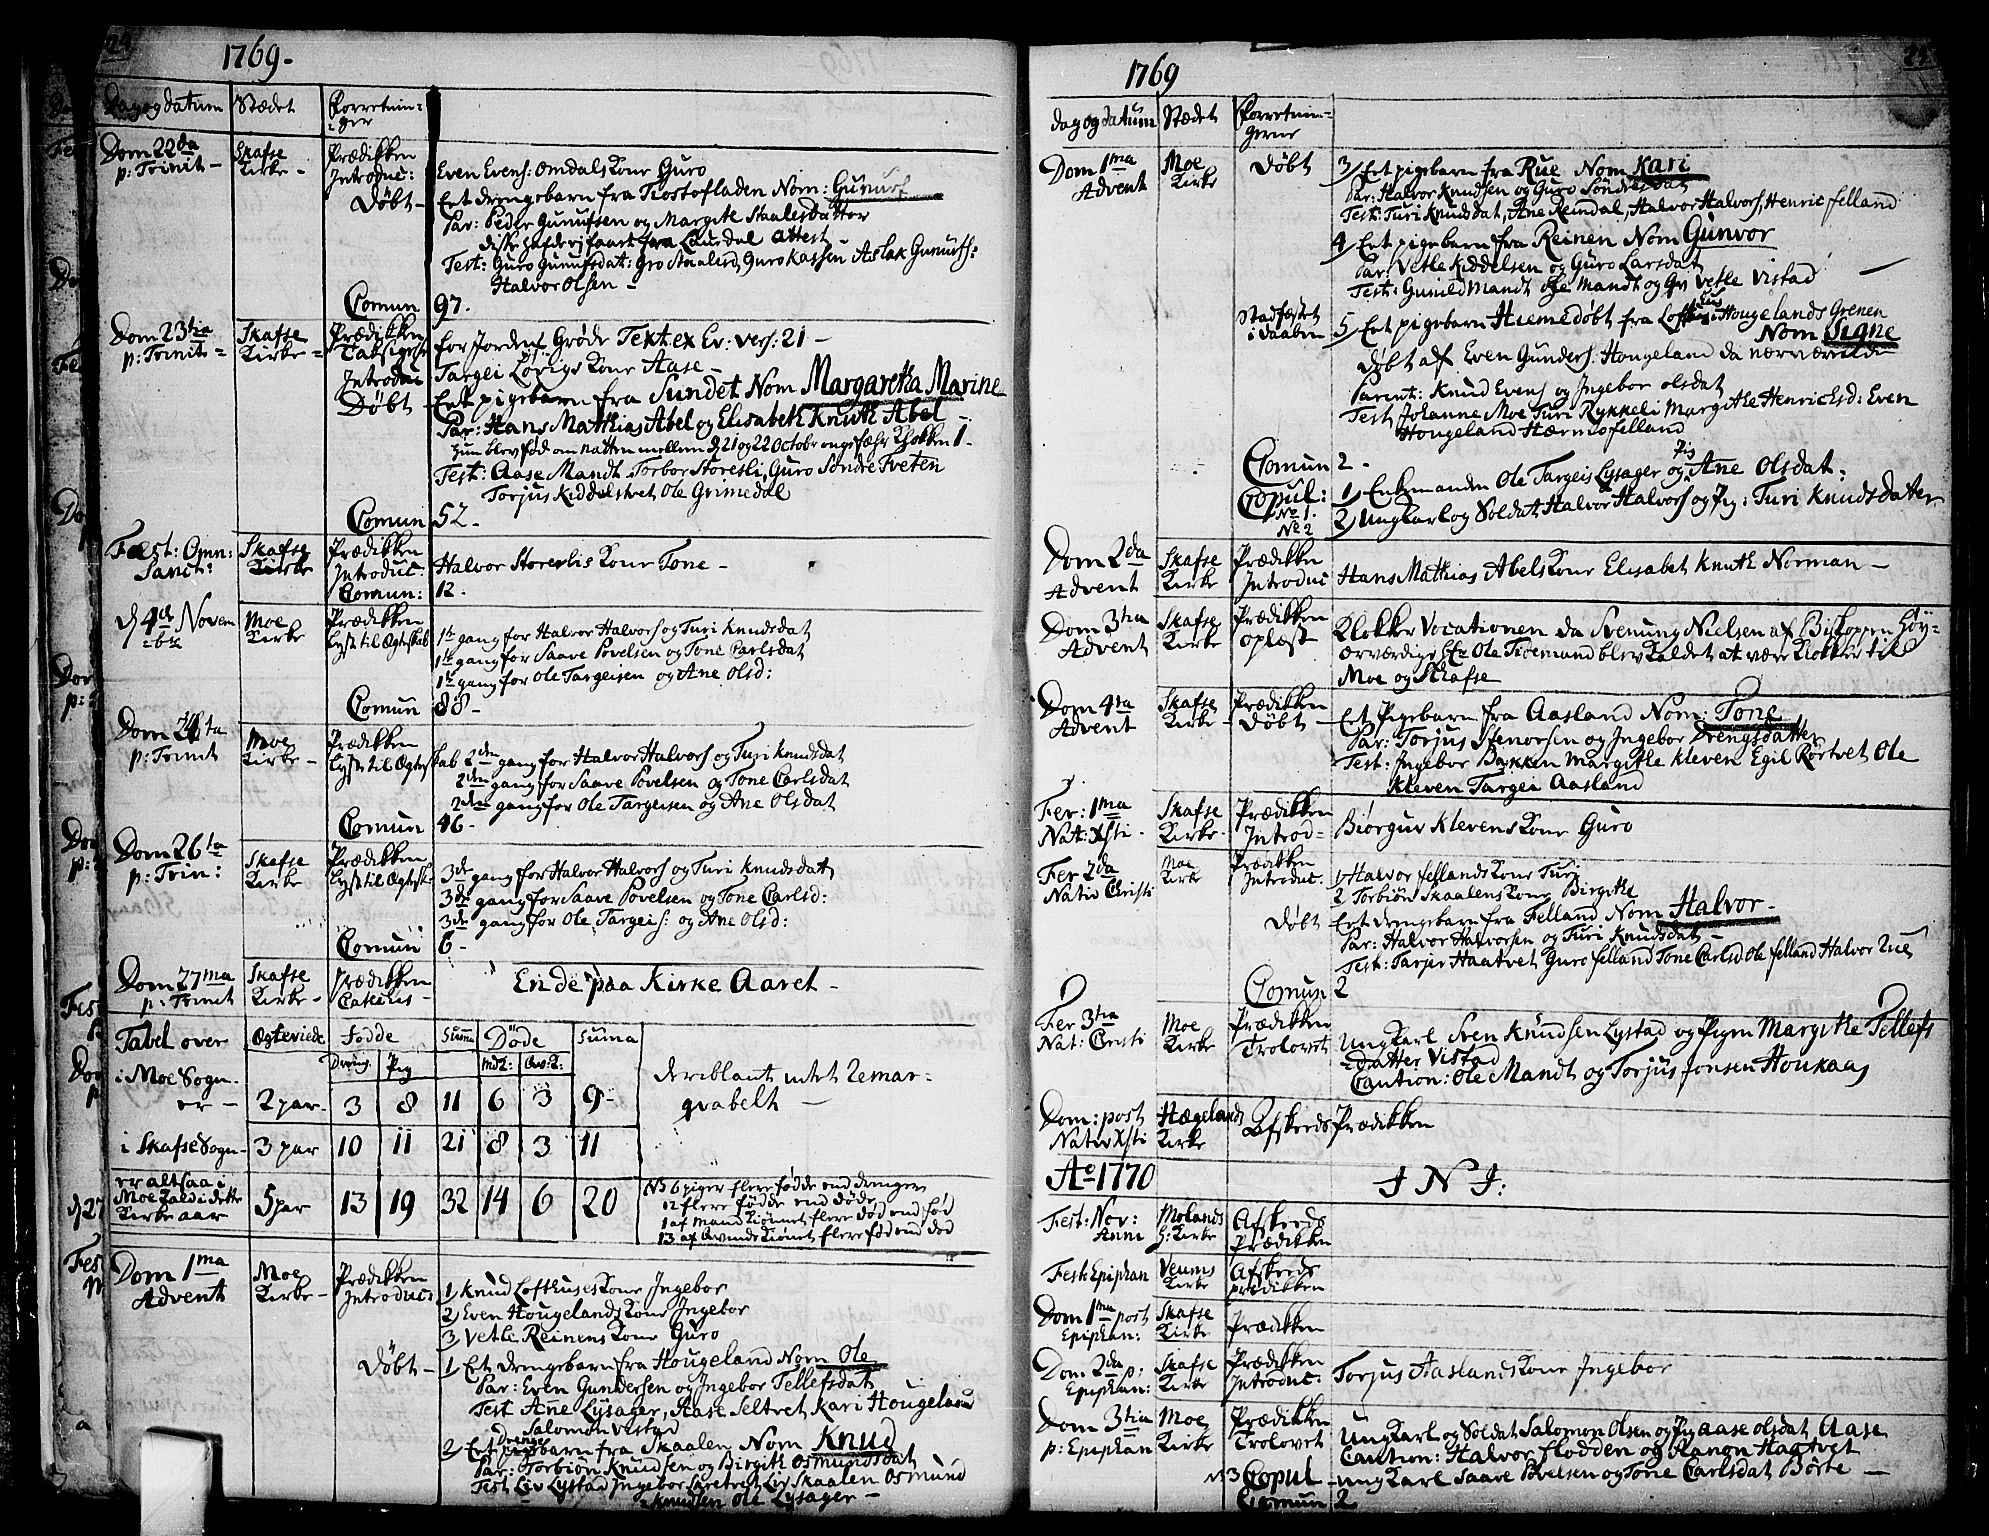 24
1769.
Dag og datum Stædet Forretnin-
ger
Dom 22da Skafse Prædikken
p: Trinit – Kirke – Introduc: Even Evens: Omdals Kone Guro
Døbt – Eet drengebarn fra Tostofladen Nom: Gunuf
Par: Peder Gunufsen og Margite Staalesdatter
Test: Guro Gunufsdat: Gro Staalesd, Guro Kassen Aslak Gunufs:
Halvor Olsen –
Comun 97.
Dom 23tia Skafse Prædikken for Jordens Grøde Text ex Ev: vers: 21 –
p: Trinit = Kirke = Taksigelse
Introduc Targei Lövigs Kone Aase –
Døbt Eet pigebarn fra Sundet Nom Margaretha Marine
Par: Hans Mathias Abel og Elisabeth Knuth Abel –
hun blev född om natten mellem d 21 og 22 Octobr ongefæhr Klokken 1 –
Test: Aase Mandt Torbor Storesli, Guro Söndre Tveten
Torjus Kiddelstvet Ole Grimedal
Comun 52 –
Fest: Omn: Skafse Prædikken
Sanct: Kirke Introduc: Halvor Storeslis Kone Tone –
Comun: 12 –
d 4de Novem Moe Prædikken
br: Kirke Lyst til Ægteskab 1te gang for Halvor Halvors og Turi Knudsdat
1te gang for Saave Povelsen og Tone Carlsdat
1te gang for Ole Targeisen og Ane Olsd:
Comun 88 –
Dom 24ta Moe Prædikken
p: Trinit Kirke – Lyst til Ægteskab 2den gang for Halvor Halvors og Turi Knudsdat
2den gang for Saave Povelsen og Tone Carlsdat
2den gang for Ole Targeisen og Ane Olsdat
Comun 46 –
Dom 26ta Skafse Prædikken
p: Trin: Kirke Lyst til Ægtesk: 3de gang for Halvor Halvors og Turi Knudsdat
3de gang for Saave Povelsen og Tone Carlsd:
3de gang for Ole Targeis: og Ane Olsd:
Comun 6 –
Dom 27ma Skafse Prædikken Ende paa Kirke Aaret –
p: Trinit Kirke – Catechis –
Tabel over Ægteviede fødde Summa Döde Suma
Dreng Pig md2: Qv:2:
i Moe Sogn deriblant intet Remar-
er – 2 par – 3 8 11 6 3 9 – qvabelt –
i Skafse Sogn – 3 par 10 11 21 8 3 11
er altsaa i
Moe Kald i dette 5 par 13 19 32 14 6 20
Kirke aar
NB 6 piger flere födde end drenger
12 flere födde end döde
1 af Mand Kiönnet flere död end föd
13 af Qvinde Kiönet flere föd end död
Dom 1ma Moe Prædikken
Advent Kirke – Introduc: 1, Knud Lofthuses Kone Ingebor
2, Even Hougelands Kone Ingebor
3, Vetle Reinens Kone Guro
Døbt – 1, Et drengebarn fra Hougeland Nom Ole
Par: Even Gundersen og Ingebor Tellefsdat
Test Ane Lysager, Aase Seltvet Kari Hougeland
Salomon Vistad
2, Eet Drengebarn fra Skaalen Nom Knud
Par: Torbiön Knudsen og Birgith Osmundsdat
Test Liv Lystad Ingebor Skretvet Liv Skaalen Osmund
Knudsen Ole Lysager –
1769
Dag og datum Stædet Forretnin-
gerne
Dom 1ma Moe Døbt 3, Eet pigebarn fra Rue Nom Kari
Advent Kirke Par: Halvor Knudsen og Guro Söndresdat
Test: Turi Knudsdat, Ane Reindal, Halvor Halvors, Henric felland
4, Eet pigebarn fra Reinen Nom Gunvor
Par: Vetle Kiddelsen og Guro Larsdat
Test: Gunild Mandt Ole Mandt og Vetle Vistad
Stadfæstet 5, Eet pigebarn Hiemedöbt fra Lofthuus i Hougelands Grenen
i Daaben Nom Signe
döbt af Even Gunders: Hougeland da nærværende
Parent: Knud Evens og Ingebor Olsdat
Test Johanne Moe Turi Rykkeli Margithe Henrichsd: Even
Hougeland Hærnes felland
Comun 2 –
Copul: 1, Enkemanden Ole Targeis Lysager og Pig Ane Olsdat:
No 1. 2, Ungkarl og Soldat Halvor Halvors og Pig: Turi Knudsdatter
No 2
Dom 2da Skafse Prædikken
Advent Kirke Introduc Hans Mathias Abels Kone Elisabet Knuth Norman –
Dom 3tia Skafse Prædikken Klokker Vocationen da Svenung Nielsen af Biskoppen Höy-
Advent Kirke oplæst – ærværdige Hr Ole Tidemand blev kaldet at være Klokker til
Moe og Skafse
Dom 4ta Skafse Prædikken
Advent Kirke – Døbt – Eet Pigebarn fra Aasland Nom: Tone
Par: Torjus Stenorsen og Ingebor Drengsdatter
Test: Ingebor Bakken Margithe Kleven Egil Rörtvet Ole
Kleven Targei Aasland
Fer: 1ma Skafse Prædikken
Nat: Xsti – Kirke – Introd= Biörguv Klevens Kone Guro
Fer 2da Moe Prædikken 1, Halvor fellands Kone Turi
Nativ Christi Kirke Introduc: 2 Torbiön Skaalens Kone Birgithe
Døbt – Eet drengebarn fra Felland Nom Halvor –
Par: Halvor Halvorsen og Turi Knudsdat –
Test: Tarjer Haatvet Guro felland Tone Carlsd Ole felland Halvor Rue
Comun 2
Fer 3tia Moe Prædikken Ungkarl Sven Knudsen Lystad og Pigen Margithe Tellefs
Nat: Cristi Kirke Trolovet datter Vistad
Caution: Ole Mandt og Torjus Jonsen Houkaas
Dom: post Hægelands Afskeds Prædikken
Nativ Xsti Kirke
Ao 1770 I N I:
Fest: Nov: Molands Afskeds
Anni H: Kirke Prædikken
Fest: Epiphan Veums Afskeds
Kirke prædikken
Dom 1ma post Skafse
Epiphan: Kirke Prædikken
Dom 2da p: Skafse Prædikken
Epiphan: Kirke Introduc: Torjus Aaslands Kone Ingebor
Dom 3tia Moe Prædikken
p: Epiphan Kirke Trolovet Ungkarl og Soldat Salomon Olsen og Pig Aase Olsdat Aase
Caution: Halvor flodden og Aanon Haatvet
N 3 Copul – Ungkarl Saave Povelsen og Tone Carlsdat Börte –
Comun 2